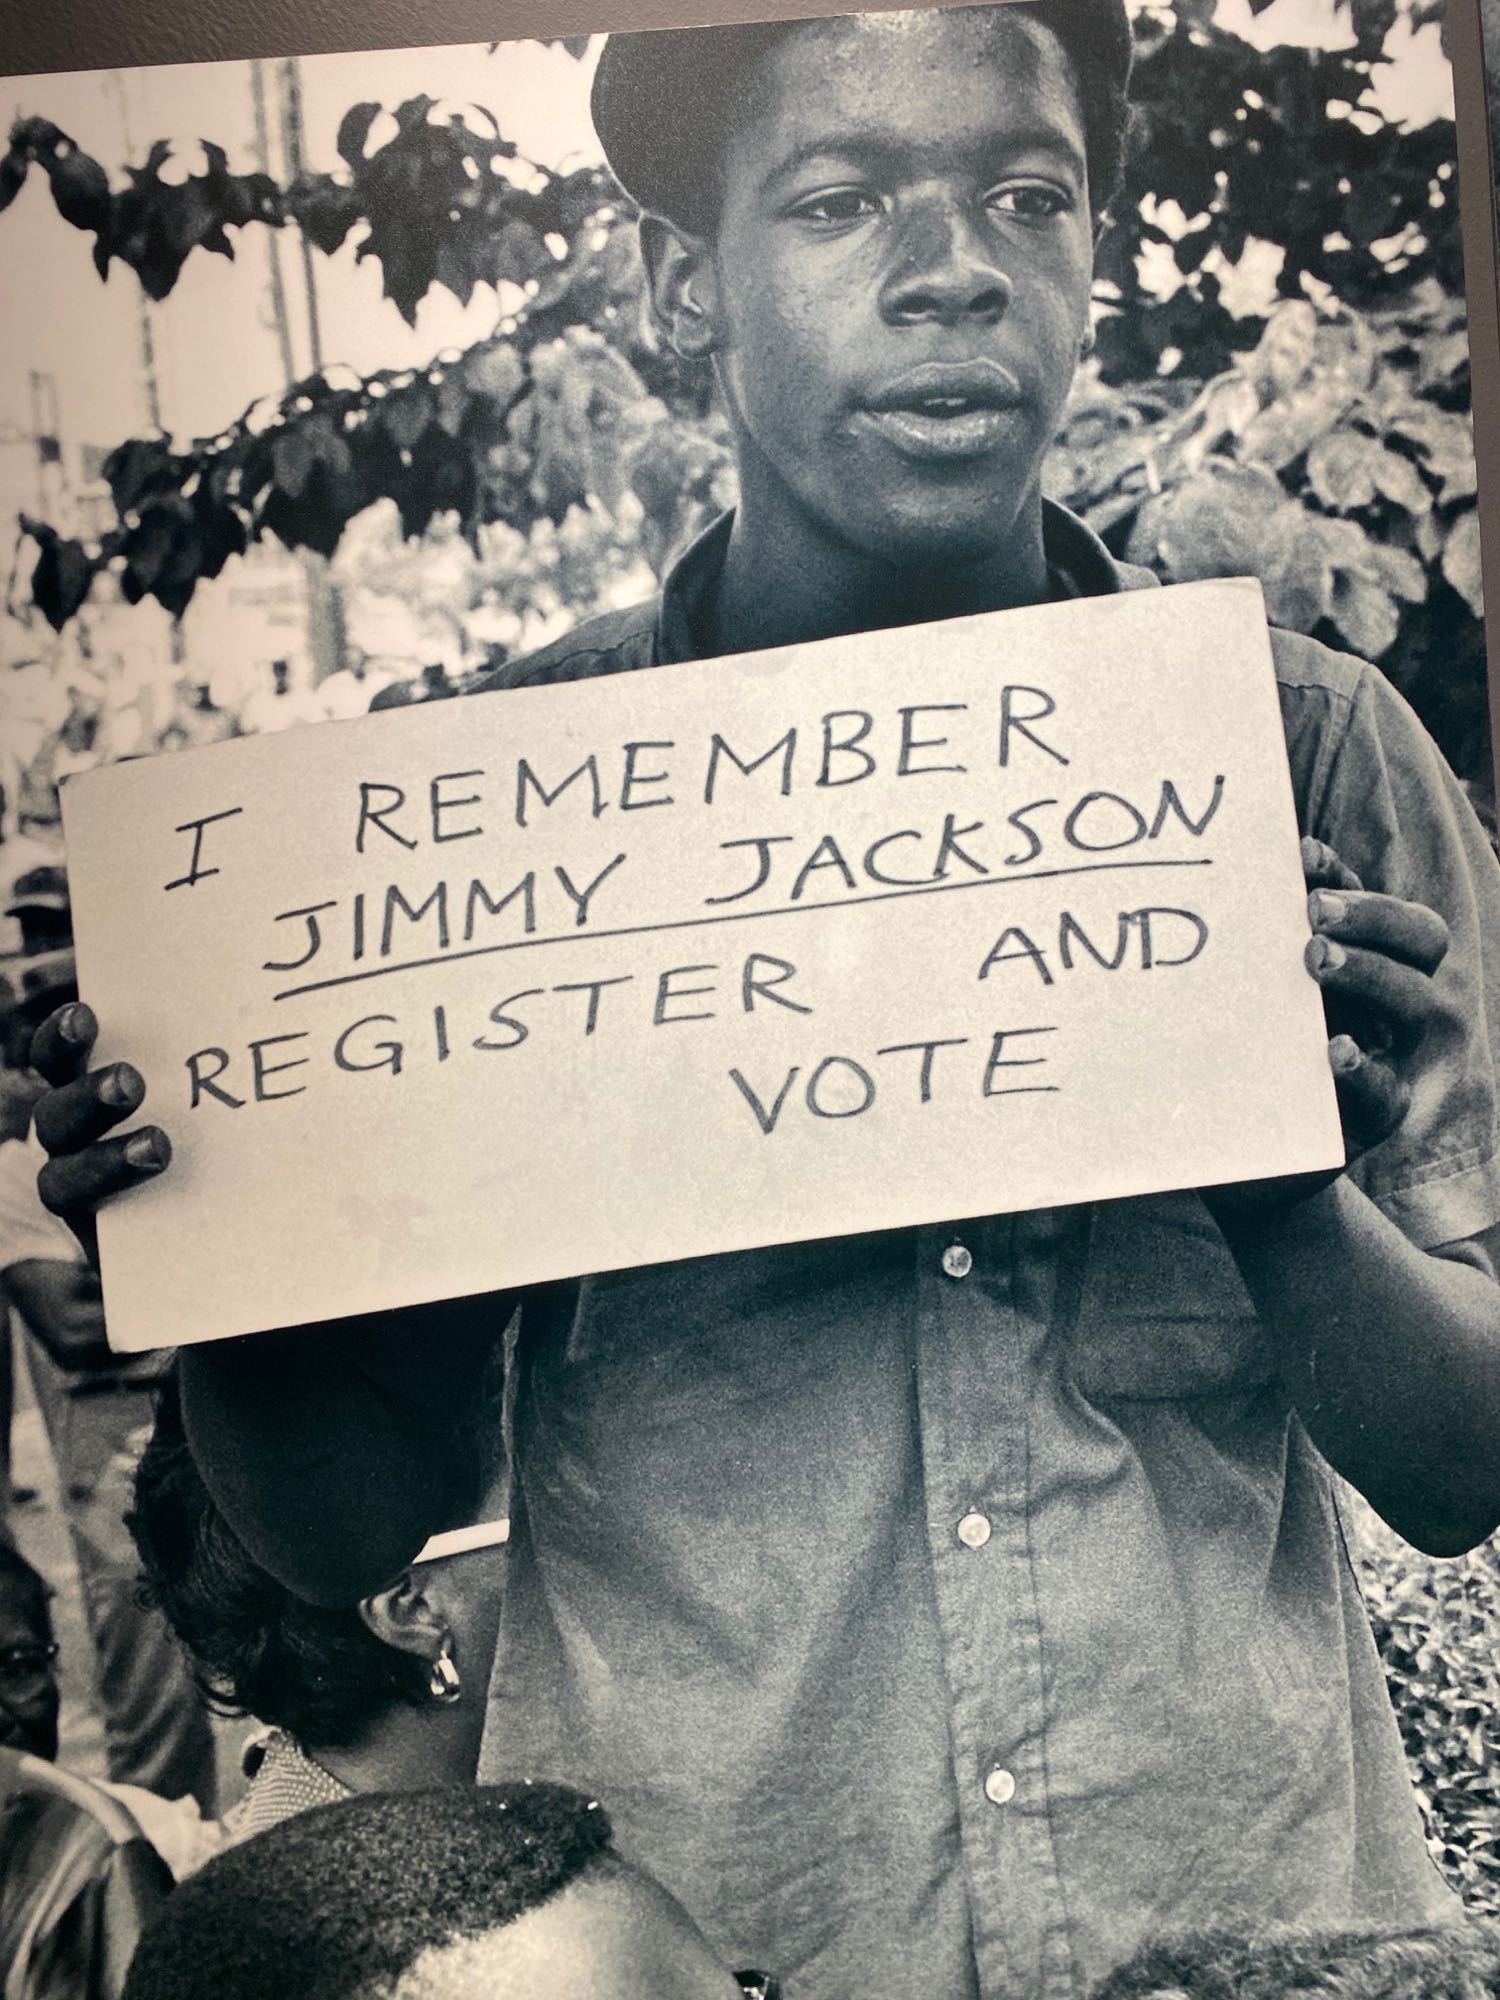 I REMEMBER
JIMMY JACKSON
REGISTER AND
VOTE